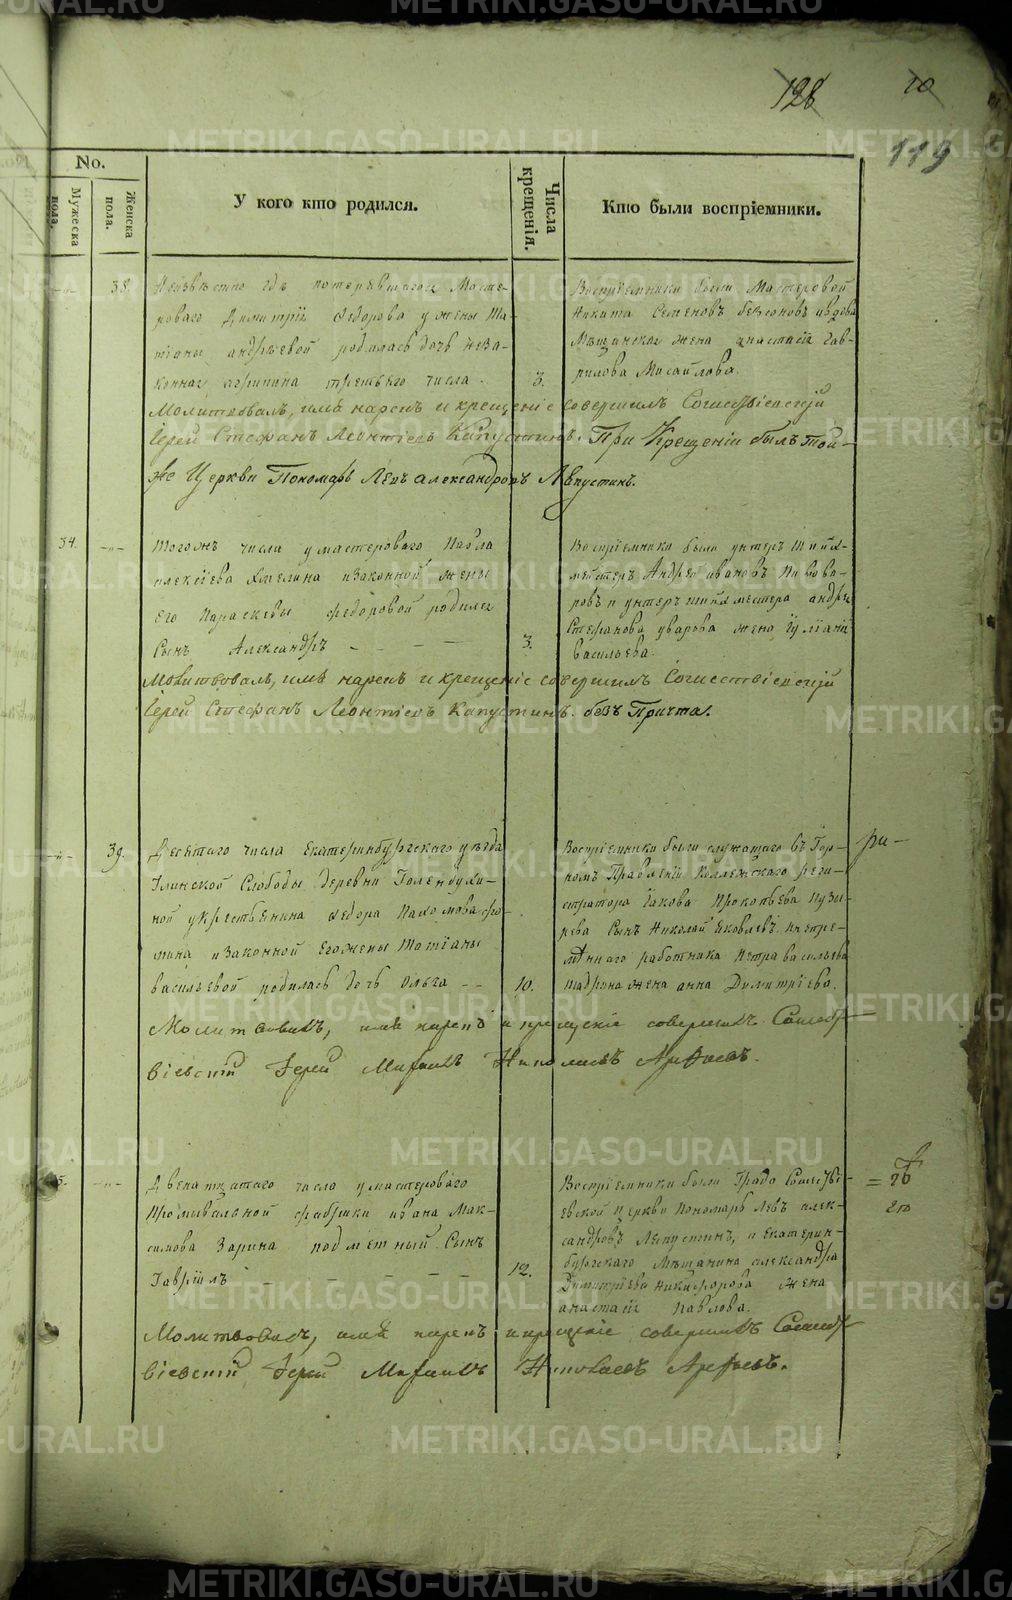 128
10
119
No.
Мужеска пола.
Женска пола.
У кого кто родился.
Числа крещенія.
Кто были воспріемники.
38.
Неизвѣстно гдѣ потерявшагося Масте-
роваго Димитрія Ѳедорова у жены Та-
тіаны андрѣевой родилась дочь неза-
коннаѧ агрипина третьяго числа.
3.
Воспріемники были Мастеровой
Никита Семеновъ
Мѣщанскаѧ жена анастасіѧ Гав-
рилова
Молитвовалъ, имѧ нарекъ и крещеніе совершилъ Сошествіевскій
Іерей Стефанъ Леонтіевъ Капустинъ. При Крещеніи былъ той-
же Церкви Пономарь Левъ Александровъ Ляпустинъ.
34.
Тогожъ числа у мастероваго Павла
алексіева Хмелина изаконной жены
его Параскевы федоровой родился
Сынъ Александръ
3.
Воспріемники были унтеръ шихт-
мейстеръ Андрей ивановъ Пивова-
ровъ и унтеръ шихтместера андрея
Стефанова уварова жена Іуліаніѧ
васильева.
Молитвовалъ, имѧ нарекъ и крещеніе совершилъ Сошествіевскій
Іерей Стефанъ Леонтіевъ Капустинъ. безъ Причта.
39.
Десятаго числа Екатеринбургскаго уѣзда
Глинской Слободы деревни Голендухи-
ной укрестьянина Ѳедора Пахомова
изаконной Егожены Татіаны
васильевой родилась дочь Ольга
10.
Воспріемники были служащаго въ Гор-
номъ Правленіи Коллежскаго реги-
стратора Іакова Прокопьева Пузы-
рева Сынъ Николай Яковлевъ, инепре-
мѣннаго работника Петра васильева
жена анна Димитріева.
Молитвовалъ, имѧ нарекъ и крещеніе совершилъ Сошест-
віевскій Іерей Михаилъ Николаевъ Арефьевъ.
5.
Двенатцатаго числа умастероваго
Промывальной фабрики ивана Мак-
симова Зарина подметный Сынъ
Гавріилъ
12.
Воспріемники были Града Сошестві-
евской Церкви Пономарь Левъ алек-
сандровъ Ляпустинъ, и Екатерин-
бургскаго Мѣщанина александра
Димитріева Никифорова жена
анастасіѧ Павлова.
Молитвовалъ, имѧ нарекъ и крещеніе совершилъ Сошест-
віевскій Іерей Михаилъ Николаевъ Арефьевъ.
METRIKI.GASO-URAL.RU